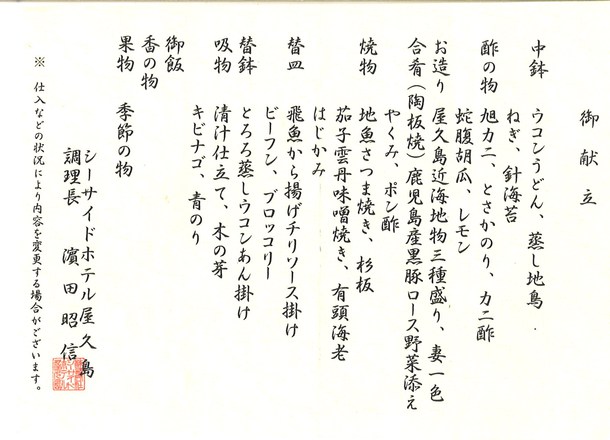 御献立
中鉢 ウコンうどん、蒸し地鳥
ねぎ、針海苔
酢の物 旭カニ、とさかのり、カニ酢
蛇腹胡瓜、レモン
お造り 屋久島近海地物三種盛り、妻一色
合肴(陶板焼)鹿児島産黒豚ロース野菜添え
やくみ、ポン酢
焼物 地魚さつま焼き、杉板
茄子雲丹味噌焼き、有頭海老
はじかみ
替皿 飛魚から揚げチリソース掛け
ビーフン、ブロッコリー
替鉢 とろろ蒸しウコンあん掛け
吸物 清汁仕立て、木の芽
キビナゴ、青のり
御飯
香の物
果物 季節の物
シーサイドホテル屋久島
調理長 濱田昭信
※ 仕入などの状況により内容を変更する場合がございます。